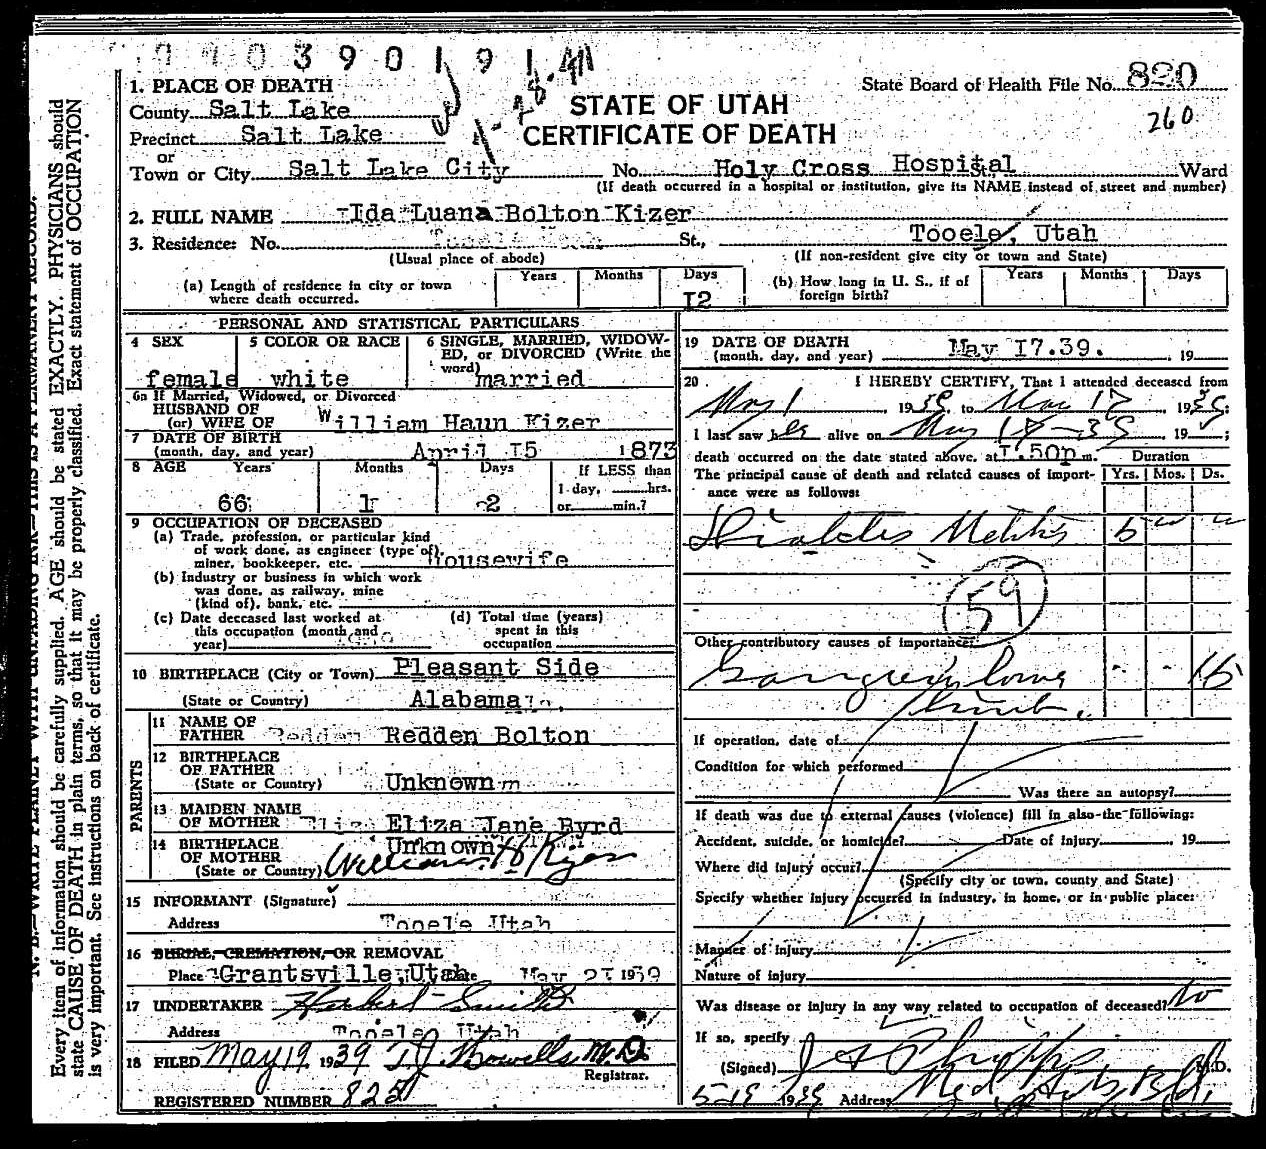 3 9 0 1 9 1
1. PLACE OF DEATH
State Board of Health File No. 820
County Salt Lake
STATE OF UTAH
260
Precinct Salt Lake
CERTIFICATE OF DEATH
or
Town or City Salt Lake City No. Holy Cross Hospital St., Ward
(If death occurred in a hospital or institution, give its NAME instead of street and number)
2. FULL NAME Ida Luana Bolton Kizer
3. Residence: No. St., Tooele, Utah
(Usual place of abode) (If non-resident give city or town and State)
(a) Length of residence in city or town where death occurred. Years Months Days 12
(b) How long in U. S., if of foreign birth? Years Months Days
PERSONAL AND STATISTICAL PARTICULARS
4 SEX female
5 COLOR OR RACE white
6 SINGLE, MARRIED, WIDOW-
ED, or DIVORCED (Write the
word) married
6a If Married, Widowed, or Divorced
HUSBAND OF
(or) WIFE OF William Haun Kizer
7 DATE OF BIRTH
(month, day, and year) April 15 1873
8 AGE Years 66 Months 1 Days 2
If LESS than
1 day, hrs.
or min.?
9 OCCUPATION OF DECEASED
(a) Trade, profession, or particular kind
of work done, as engineer (type of),
miner, bookkeeper, etc. Housewife
(b) Industry or business in which work
was done, as railway, mine
(kind of), bank, etc.
(c) Date deceased last worked at
this occupation (month and
year)
(d) Total time (years)
spent in this
occupation
10 BIRTHPLACE (City or Town) Pleasant Side
(State or Country) Alabama
PARENTS
11 NAME OF
FATHER Redden Bolton
12 BIRTHPLACE
OF FATHER
(State or Country) Unknown
13 MAIDEN NAME
OF MOTHER Eliza Jane Byrd
14 BIRTHPLACE
OF MOTHER
(State or Country) Unknown
William H Kizer
15 INFORMANT (Signature)
Address Tooele Utah
16 BURIAL, CREMATION, OR REMOVAL
Place Grantsville, Utah Date May 21 1939
17 UNDERTAKER Herbert Smith
Address Tooele Utah
18 FILED May 19 1939 T.J. Howells M.D.
Registrar.
REGISTERED NUMBER 825
19 DATE OF DEATH
(month, day, and year) May 17.39. , 19
20 I HEREBY CERTIFY, That I attended deceased from
May 1, 1939, to May 17, 1939;
I last saw her alive on May 19 ;
death occurred on the date stated above, at 1.50p m. Duration
The principal cause of death and related causes of import-
ance were as follows: Yrs. Mos. Ds.
Diabetes 5
59
Other contributory causes of importance:
Gangrene lower 15
limb.
If operation, date of
Condition for which performed
Was there an autopsy?
If death was due to external causes (violence) fill in also the following:
Accident, suicide, or homicide? Date of injury 19
Where did injury occur?
(Specify city or town, county and State)
Specify whether injury occurred in industry, in home, or in public place:
Manner of injury
Nature of injury
Was disease or injury in any way related to occupation of deceased? No
If so, specify
(Signed) M.D.
5-19 1939 Address Med. Arts Bld,
N. B.—WRITE PLAINLY WITH UNFADING INK—THIS IS A PERMANENT RECORD.
Every item of information should be carefully supplied. AGE should be stated EXACTLY. PHYSICIANS should
state CAUSE OF DEATH in plain terms, so that it may be properly classified. Exact statement of OCCUPATION
is very important. See instructions on back of certificate.